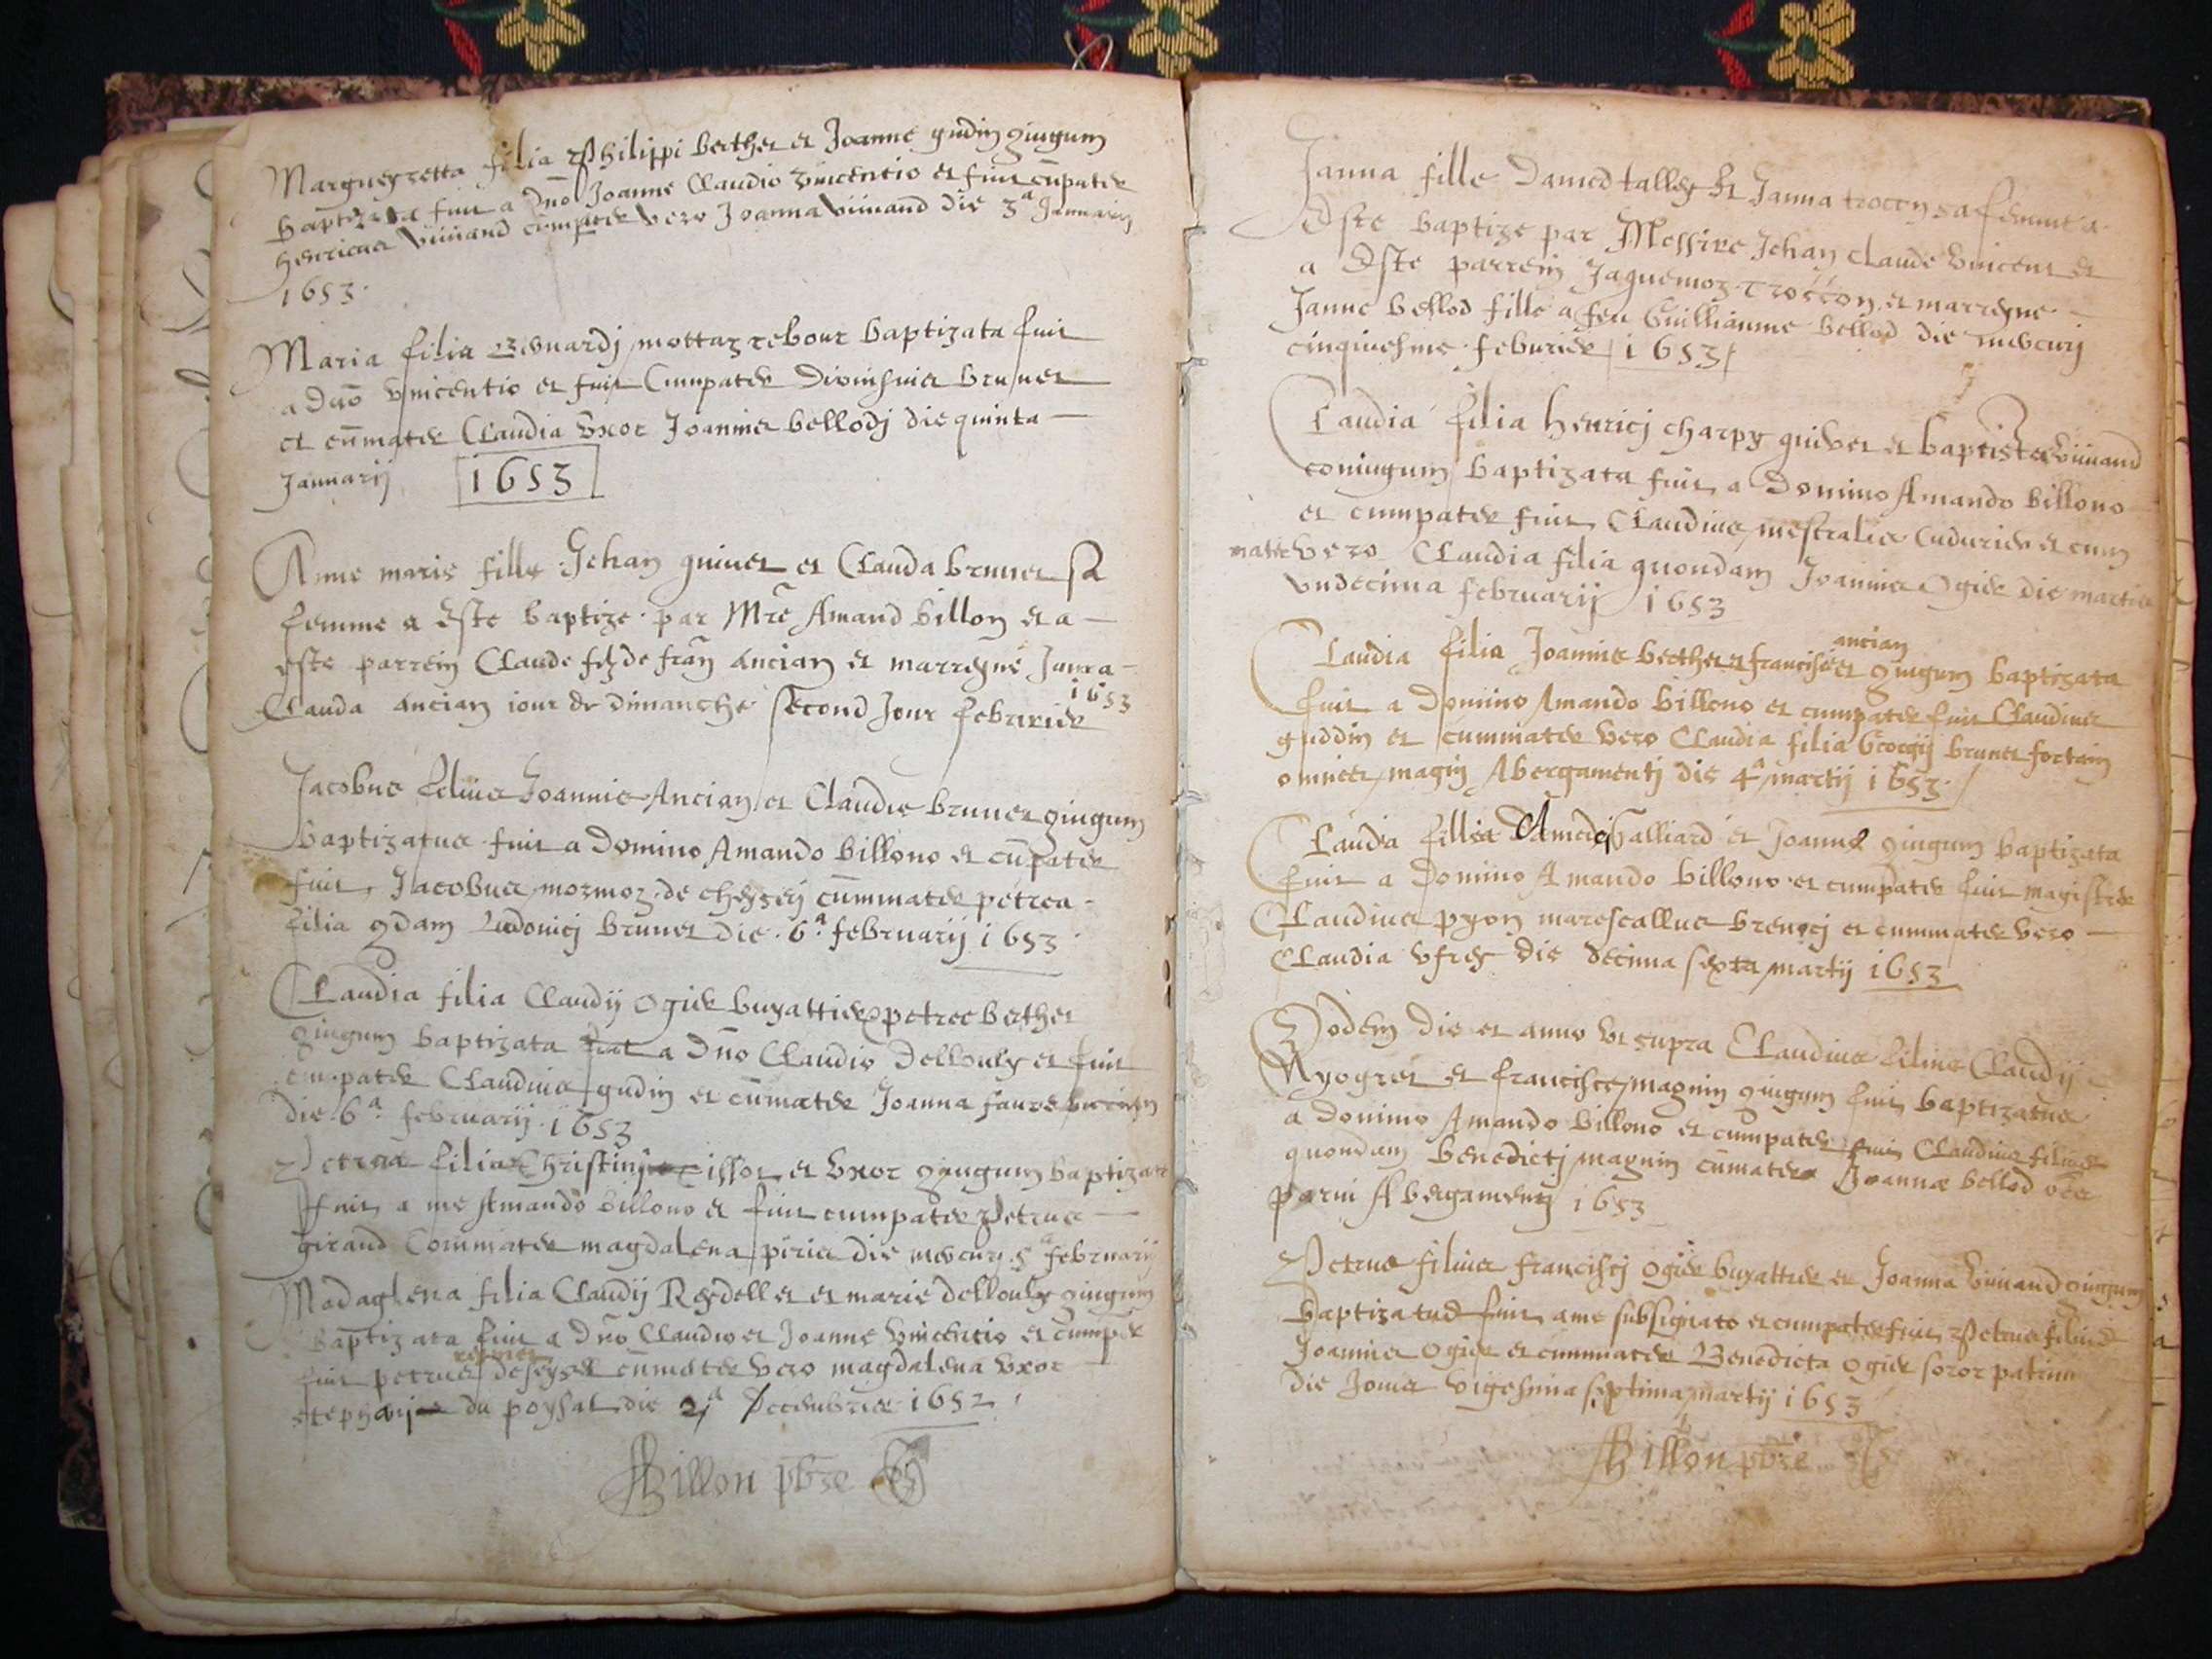 Margueyretta filia Philippi berthet et Joanne gudin giugum
baptizata fuit a Dno Joanne Claudio vincentio et fuit cumpater
henricus viuiand cumater vero Joanna viuiand die 3a Januarij
1653.
Maria filia Bernardj mottaz rebour baptizata fuit
a Dno vincentio et fuit Cumpater Dionisius brunet
et cummater Claudia vxor Joannis bellodj die quinta
Januarij 1653
Anne marie fille Jehan guiuet et Clauda brunet sa
femme a Este baptize par Mre Amand billon et a
este parrein Claude fz de fran ancian et marreyne
Clauda ancian iour de dimanche second Jour februier 1653
Jacobus filius Joannis Ancian et Claudie brunet giugum
baptizatus fuit a Domino Amando billono et cumpater
fuit Jacobus mozmoz de cheysey cummater petrea
filia qdam Ludouicj brunet die 6a februarij 1653
Claudia filia Claudij ogier buyattier petree berthet
giugum baptizata fuit a Dno Claudio Dellouly et fuit
cumpater Claudius gudin et cummater Joanna faure
die 6a februarij 1653
Petrea filia Christinj issot et vxor giugum baptizata
fuit a me Amando billono et fuit cumpater Petrus
girand Commater magdalena piria die mercurij 5a februarij
Madaglena filia Claudij Reydellet et marie dellouly giugum
baptizata fuit a Dno Claudio et Joanne vincentio et cumper
fuit petrus deseyset cummater vero magdalena vxor
stephanj du poysat die 21a Decembris 1652
ABillon pbre
Janna fille Damed talley Et Janna troccon sa femme a
Este baptize par Messire Jehan Claude vincent et
a Este parrein Jaquemoz Troccon et marreyne
Janne bellod fille a feu Guilliaume bellod die mercurij
cinquiesme feburier 1653
Claudia filia henricj charpy guiuet et baptiste viuiand
coniugum baptizata fuit a Domino Amando billono
et cumpater fuit Claudius mestralis et cum
mater vero Claudia filia quondam Joannis Ogier die martis
vndecima februarij 1653
Claudia filia Joannis berthet et francisce ancian giugum baptizata
fuit a Domino Amando billono et cumpater fuit Claudius
guddin et cummater vero Claudia filia Georgij brunet fortain
omnes magnj Abergamentj die 4a martij 1653.
Claudia fillia Amedej Galliard et Joanne giugum baptizata
fuit a Domino Amando billono et cumpater fuit magister
Claudius pyon marescallus brenocj et cummater vero
Claudia vfrey die decima sexta martij 1653
Eodem die et anno vt supra Claudius filius Claudij
Nyogret et francisce magnin giugum fuit baptizatus
a Domino Amando billono et cumpater fuit Claudius filius
quondam benedictj magnin cumater Joanna bellod oes
parui Abergamentj 1653
Petrus filius franciscj ogier buyattier et Joanna viuiand giugum
baptizatus fuit a me subsignato et cumpater fuit Petrus filius
Joannis Ogier et cummater Benedicta ogier soror patrini
die Jouis vigesima septima martij 1653
ABillon pbre